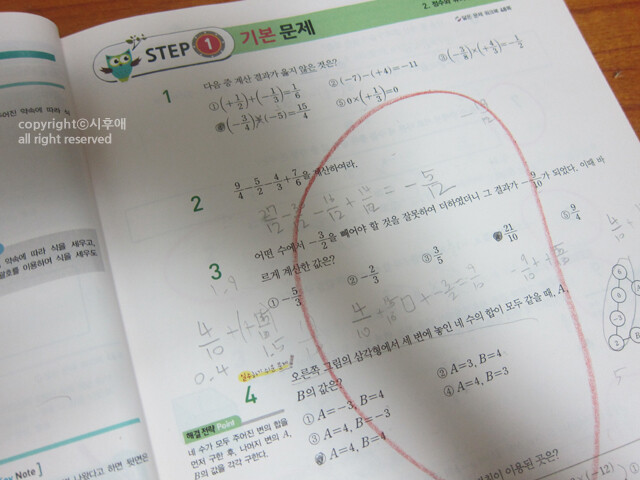 2. 정수와 유
STEP 1 기본 문제
1 다음 중 계산 결과가 옳지 않은 것은?
① (+1/2)+(-1/3)=1/6 ② (-7)-(+4)=-11 ③ (-3/8)×(+4/3)=-1/2
(-3/4)×(-5)=15/4 ⑤ 0×(+1/3)=0
copyrightⓒ시후애
all right reserved
2 9/4-5/2-4/3+7/6을 계산하여라.
27/12 - 30/12 - 16/12 + 14/12 = -5/12
3 어떤 수에서 -3/2을 빼어야 할 것을 잘못하여 더하였더니 그 결과가 -9/10가 되었다. 이때 바
르게 계산한 값은?
① -5/3 ② -2/3 ③ 3/5 21/10 ⑤ 9/4
약속에 따라 식을 세우고,
괄호를 이용하여 식을 세우도
4/10
0.4
1.5
4 오른쪽 그림의 삼각형에서 세 변에 놓인 네 수의 합이 모두 같을 때, A,
B의 값은?
① A=-3, B=4 ② A=3, B=4
③ A=4, B=-3 ④ A=4, B=3
A=4, B=4
해결 전략 Point
네 수가 모두 주어진 변의 합을
먼저 구한 후, 나머지 변의 A,
B의 값을 각각 구한다.
이 이용된 곳은?
×(-12)
Note ]
나왔다고 하면 뒷면은